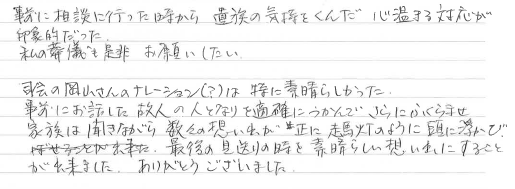 事前に相談に行った時から 遺族の気持をくんだ 心温まる対応が
印象的だった.
私の葬儀も是非 お願いしたい.
司会の岡山さんのナレーション(?)は 特に素晴らしかった.
事前にお話した 故人の人となりを適確につかんで さらにふくらませ
家族は聞きながら 数々の想いれが 正に走馬灯のように頭に浮かび
最後の見送りの時を素晴らしい想いれにすること
が出来ました. ありがとうございました.